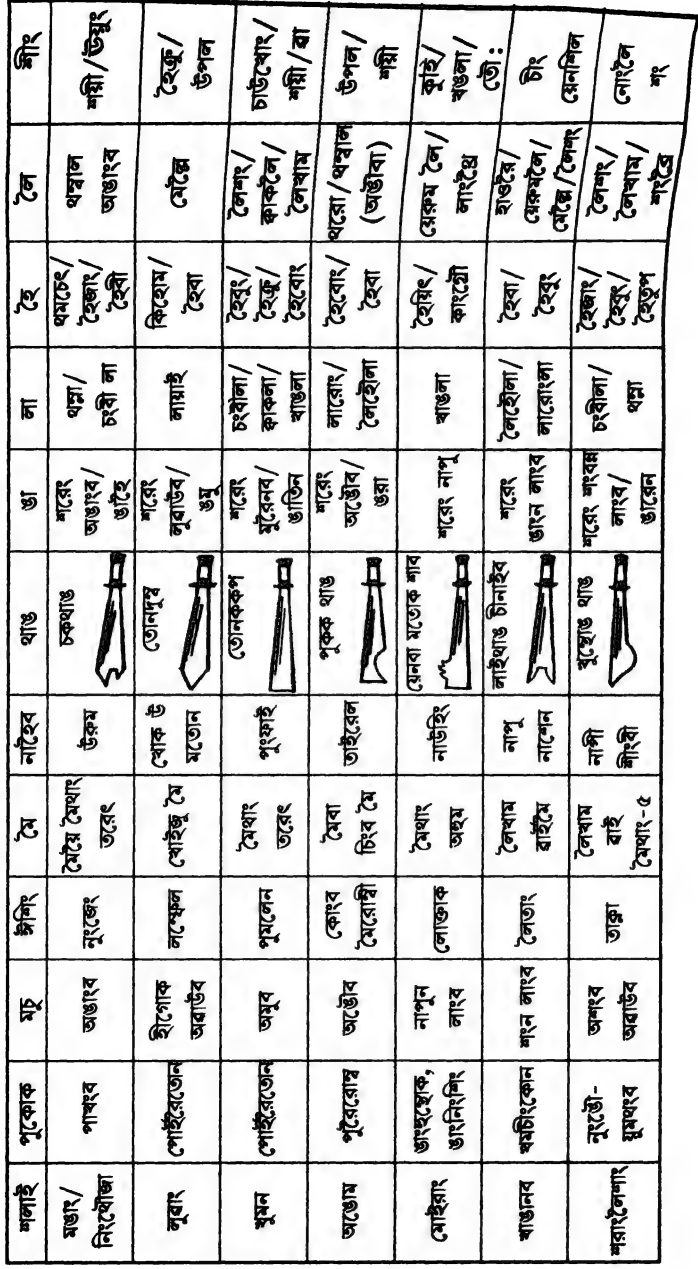 শলাই পুকোক মচু ঈশিং মৈ নাহৈব থাঙ ঙা লা হৈ লৈ শীং
মঙাং/ নিংথৌজা
পাখংব
অঙাংব
নুংজেং
মৈয়ৈ মৈথাং তরেৎ
উরুম
চকথাঙ
শরেং অঙাংব/ ঙাহৈ
থম্না/ চংবী লা
থমচেৎ/ হৈজাং/ হৈবী
থম্বাল অঙাংব
শয়ী/ঊয়ুং
লুৱাং
পোইরৈতোন
হীগোক অৱাউব
লম্ফেল
খোইজু মৈ
খোক উ মতোন
তোনদুম্ব
শরেং লুৱাউব/ ঙমু
লায়াই
কিহোম/ হৈবা
মেল্লৈ
হৈক্রু/ উপল
খুমন
পোইরৈতোন
অমুব
পুমলেন
মৈথাং তরেৎ
পুংফাই
তোনককপ
শরেং মুরেনব/ ঙাতিন
চংবীলা/ ক্বাকলা/ খাঙলা
হৈবুং/ হৈক্রু/ হৈবোং
লৈশং/ ক্বাকলৈ/ লৈখাম
চাউখোং/ শয়ী/ ৱা
অঙোম
পুরৈরোম্ব
অঙৌব
কোংব মৈরোম্বী
মৈবা চিংব মৈ
তাইরেল
পুকক থাঙ
শরেং অঙৌব/ ঙরা
লারোং/ লৈহৌলা
হৈবোং/ হৈবা
থরো/থম্বাল (অঙৌবা)
উপল/ শয়ী
মোইরাং
ঙাংহুম্থোক, ঙাংনিংশিং
নাপুন লাংব
লোক্তাক
মৈথাং অহুম
নাউহিং
য়েনবা মতোক শাব
শরেং নাপু
খাঙলা
হৈয়িৎ/ কাংগ্রৌ
য়েরুম লৈ/ লাংথ্রৈ
কুহি/ খঙলা/ তৌ:
খাঙানব
থমচীংকোন
শংন লাংব
লৈতাং
লৈখাম ৱাইমৈ
নাপু নাশেন
লাইথাঙ চীনাইব
শরেং ঙাংন লাংব
লৈহৌলা/ লারোংলা
হৈবা/ হৈবুং
হাওরৈ/ য়েরুমলৈ/ মেল্লৈ/লৈশং
চীং য়েনশিল
শরাংলৈশাং
নুংঙৌ- য়ুমথংব
অশংব অৱাউব
তাক্না
লৈখাম ৱাই মৈথাং-৫
নাপী শীংবী
খুম্থোঙ থাঙ
শরেং শংবন্ন লাংব/ ঙারেন
চংবীলা/ থম্না
হৈজাং/ হৈবুং/ হৈতুপ
লৈশং/ লৈখাম/ শংব্রৈ
নোংলৈ শং